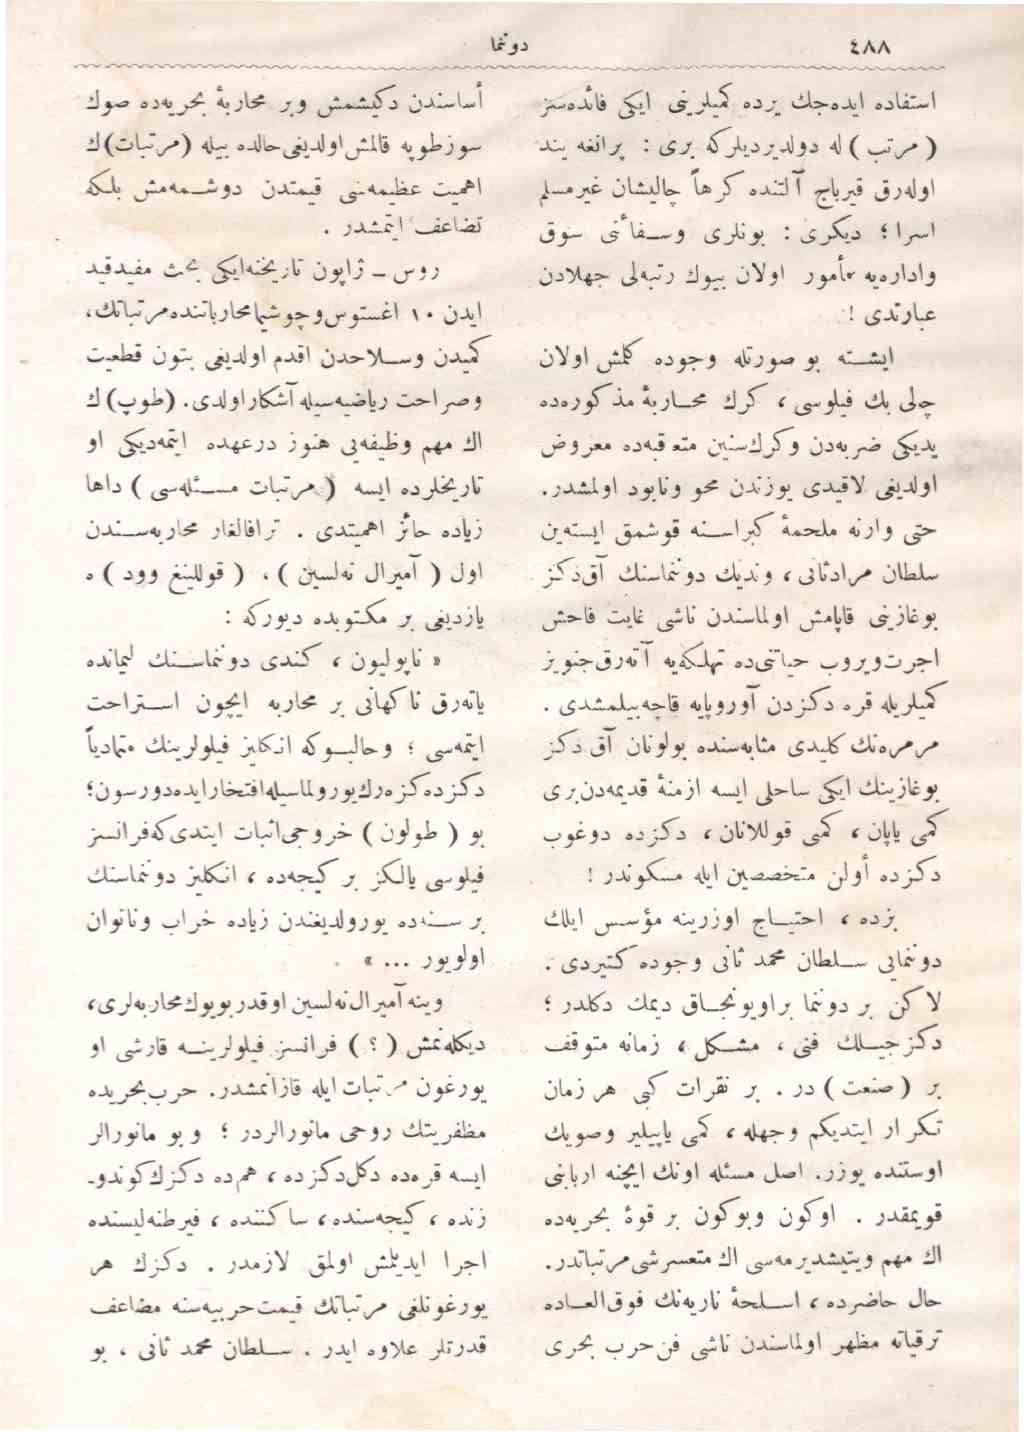 ٤٨٨
دوننما
استفاده ایده‌جك یرده كمیلرینی ایكی فائده‌سز
( مرتب ) له دولدیردیلركه بری : پرانغه بند
اوله‌رق قیرباج آلتنده كرهاً چالیشان غیرمسلم
اسرا ؛ دیكری : بونلری وسفائنی سوق
واداره‌یه مأمور اولان بیوك رتبه‌لی جهلادن
عبارتدی !
ایشته بو صورتله وجوده كلمش اولان
چالی بك فیلوسی ، كرك محاربهٔ مذكوره‌ده
یدیكی ضربه‌دن وكرك‌سنین متعاقبه‌ده معروض
اولدیغی لاقیدی یوزندن محو ونابود اولمشدر.
حتی وارنه ملحمهٔ كبراسنه قوشمق ایسته‌ین
سلطان مرادثانی ، وندیك دوننماسنك آق‌دكز
بوغازینی قاپامش اولماسندن ناشی غایت فاحش
اجرت‌ویروب حیاتنی‌ده تهلكه‌یه آته‌رق‌جنویز
كمیلریله قره دكزدن آوروپایه قاچه‌بیلمشدی .
مرمره‌نك كلیدی مثابه‌سنده بولونان آق دكز
بوغازینك ایكی ساحلی ایسه ازمنهٔ قدیمه‌دن‌بری
كمی یاپان ، كمی قوللانان ، دكزده دوغوب
دكزده أولن متخصصین ایله مسكوندر !
بزده ، احتیاج اوزرینه مؤسس ایلك
دوننمایی سلطان محمد ثانی وجوده كتیردی .
لاكن بر دوننما براویونجاق دیمك دكلدر ؛
دكزجیلك فنی ، مشكل ، زمانه متوقف
بر ( صنعت ) در . بر نقرات كبی هر زمان
تكرار ایتدیكم وجهله ، كمی یاپیلیر وصویك
اوستنده یوزر. اصل مسئله اونك ایچنه اربابنی
قویمقدر . اوكون وبوكون بر قوهٔ بحریه‌ده
اك مهم ویتیشدیرمه‌سی اك متعسرشی‌مرتباتدر.
حال حاضرده ، اسلحهٔ ناریه‌نك فوق‌العاده
ترقیاته مظهر اولماسندن ناشی فن حرب بحری
أساسندن دكیشمش وبر محاربهٔ بحریه‌ده صوك
سوزطوپه قالمش‌اولدیغی‌حالده بیله (مرتبات)ك
اهمیت عظیمه‌سی قیمتدن دوشمه‌مش بلكه
تضاعف ایتمشدر .
روس ـ ژاپون تاریخنه‌ایكی بحث مفیدقید
ایدن ١٠ اغستوس‌وچوشیما محارباتنده‌مرتباتك،
كمیدن وسلاحدن اقدم اولدیغی بتون قطعیت
وصراحت ریاضیه‌سیله آشكاراولدی. (طوپ)ك
اك مهم وظیفه‌یی هنوز درعهده ایتمه‌دیكی او
تاریخلرده ایسه ( مرتبات مسئله‌سی ) داها
زیاده حائز اهمیتدی . ترافالغار محاربه‌سندن
اول ( آمیرال نه‌لسین ) ، ( قوللینغ وود ) ه
یازدیغی بر مكتوبده دیوركه :
« ناپولیون ، كندی دوننماسنك لیمانده
یاته‌رق ناكهانی بر محاربه ایچون استراحت
ایتمه‌سی ؛ وحالبوكه انكلیز فیلولرینك متمادیاً
دكزده‌كزه‌رك‌یورولماسیله‌افتخارایده‌دورسون؛
بو ( طولون ) خروجی‌اثبات ایتدی‌كه‌فرانسز
فیلوسی یالكز بر كیجه‌ده ، انكلیز دوننماسنك
بر سنه‌ده یورولدیغندن زیاده خراب وناتوان
اولویور ... »
وینه آمیرال‌نه‌لسین اوقدربویوك‌محاربه‌لری،
دیكله‌نمش ( ؟ ) فرانسز فیلولرینه قارشی او
یورغون مرتبات ایله قازانمشدر. حرب‌بحریده
مظفریتك روحی مانورالردر ؛ وبو مانورالر
ایسه قره‌ده دكل‌دكزده ، هم‌ده دكزك‌كوندوـ
زنده ، كیجه‌سنده ، ساكتنده ، فیرطنه‌لیسنده
اجرا ایدیلمش اولمق لازمدر . دكزك هر
یورغونلغی مرتباتك قیمت‌حربیه‌سنه مضاعف
قدرتلر علاوه ایدر . سلطان محمد ثانی ، بو